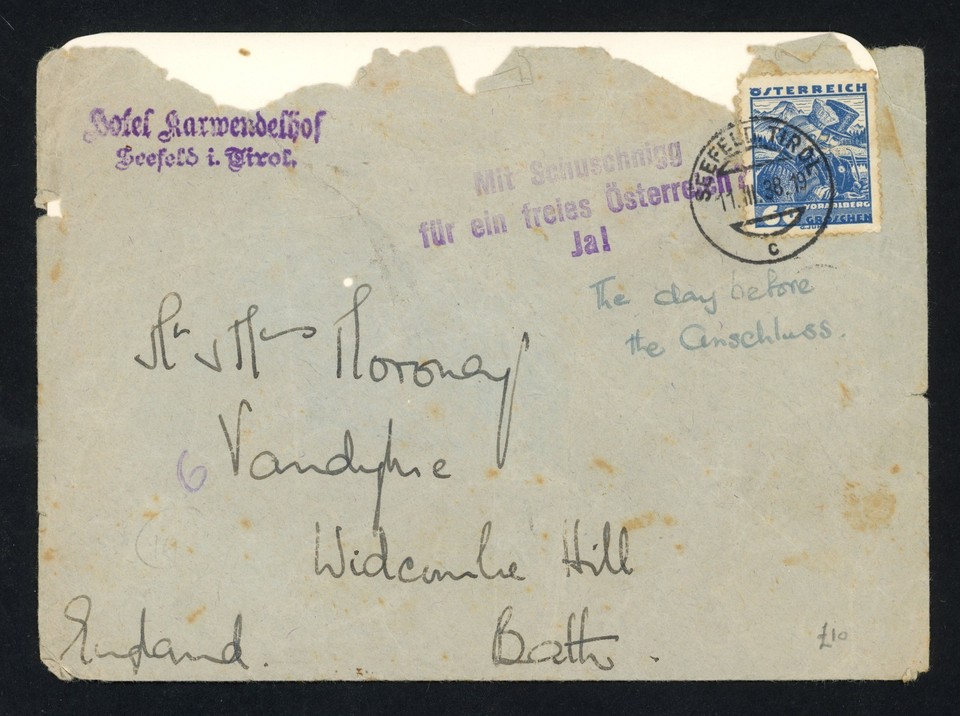 Hotel Karwendelhof
Seefeld i. Tirol.
Mit Schuschnigg
für ein freies Österreich!
Ja!
ÖSTERREICH
VORARLBERG
60 GROSCHEN
SEEFELD, TIROL
11.III.38.19
c
The day before
the Anschluss.
Mr & Mrs Moroney
Vandyke
6
Widcombe Hill
England. Bath.
£10